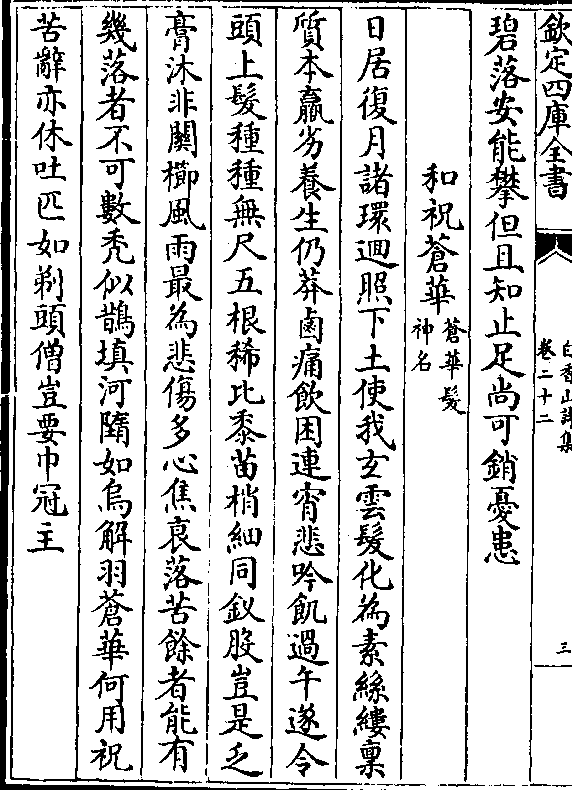 欽定四庫全書
白香山詩集
卷二十二
三
碧落安能攀但且知止足尚可銷憂患
和祝蒼華
蒼華髮
神名
日居復月諸環迴照下土使我玄雲髮化為素絲縷稟
質本羸劣養生仍莽鹵痛飲困連宵悲吟飢過午遂令
頭上髮種種無尺五根稀比黍苗梢細同釵股豈是乏
膏沐非關櫛風雨最為悲傷多心焦衰落苦餘者能有
幾落者不可數禿似鵲填河隳如烏解羽蒼華何用祝
苦辭亦休吐匹如剃頭僧豈要巾冠主